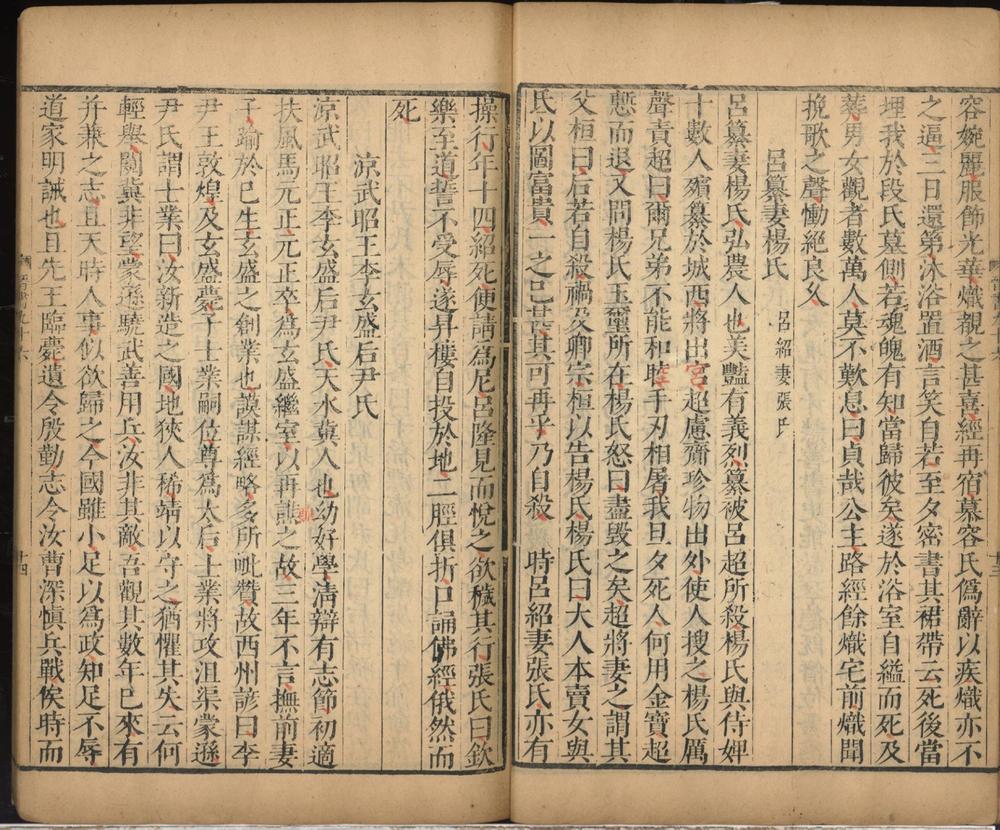 容婉麗服飾光華熾覩之甚喜經再宿慕容氏僞辭以疾熾亦不
之逼三日還第沐浴置酒言笑自若至夕密書其裙帶云死後當
埋我於段氏墓側若魂魄有知當歸彼矣遂於浴室自縊而死及
葬男女觀者數萬人莫不歎息曰貞哉公主路經餘熾宅前熾聞
挽歌之聲慟絕良久
呂纂妻楊氏　呂紹妻張氏
呂纂妻楊氏弘農人也美豔有義烈纂被呂超所殺楊氏與侍婢
十數人殯纂於城西將出宮超慮齎珍物出外使人搜之楊氏厲
聲責超曰爾兄弟不能和睦手刃相屠我旦夕死人何用金寶超
慙而退又問楊氏玉璽所在楊氏怒曰盡毀之矣超將妻之謂其
父桓曰后若自殺禍及卿宗桓以告楊氏楊氏曰大人本賣女與
氏以圖富貴一之已甚其可再乎乃自殺　時呂紹妻張氏亦有
十三
操行年十四紹死便請爲尼呂隆見而悅之欲穢其行張氏曰欽
樂至道誓不受辱遂昇樓自投於地二脛俱折口誦佛經俄然而
死
涼武昭王李玄盛后尹氏
涼武昭王李玄盛后尹氏天水冀人也幼好學清辯有志節初適
扶風馬元正元正卒爲玄盛繼室以再醮之故三年不言撫前妻
子踰於已生玄盛之創業也謨謀經略多所毗贊故西州諺曰李
尹王敦煌及玄盛薨子士業嗣位尊爲太后士業將攻沮渠蒙遜
尹氏謂士業曰汝新造之國地狹人稀靖以守之猶懼其失云何
輕舉闚冀非望蒙遜驍武善用兵汝非其敵吾觀其數年已來有
幷兼之志且天時人事似欲歸之今國雖小足以爲政知足不辱
道家明誡也且先王臨薨遺令殷勤志令汝曹深慎兵戰俟時而
十四